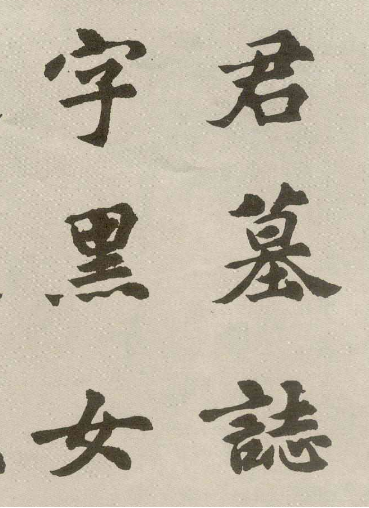 君墓誌
字黑女